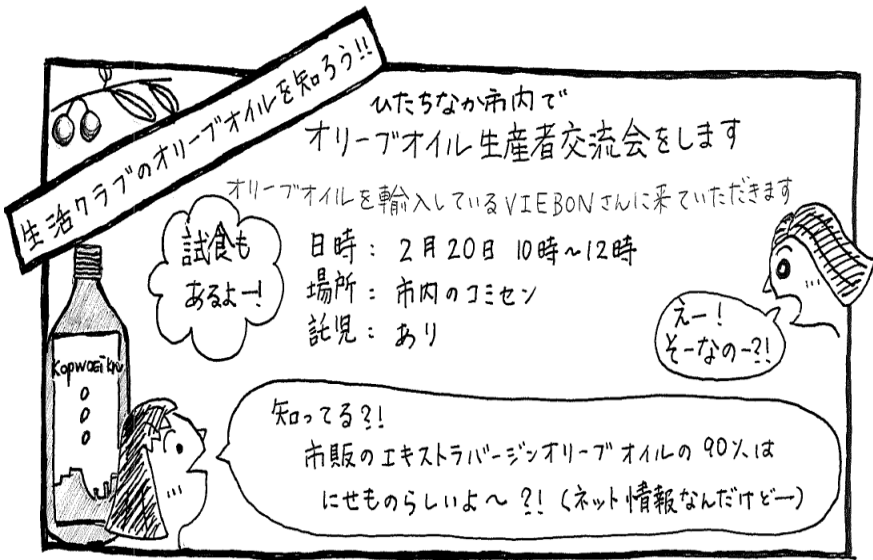 生活クラブのオリーブオイルを知ろう!!
ひたちなか市内で
オリーブオイル生産者交流会をします
オリーブオイルを輸入しているVIEBONさんに来ていただきます
試食も
あるよー!
日時： 2月20日 10時～12時
場所： 市内のコミセン
託児： あり
えー!
そーなのー?!
知ってる?!
市販のエキストラバージンオリーブオイルの90%は
にせものらしいよ～?!（ネット情報なんだけどー）